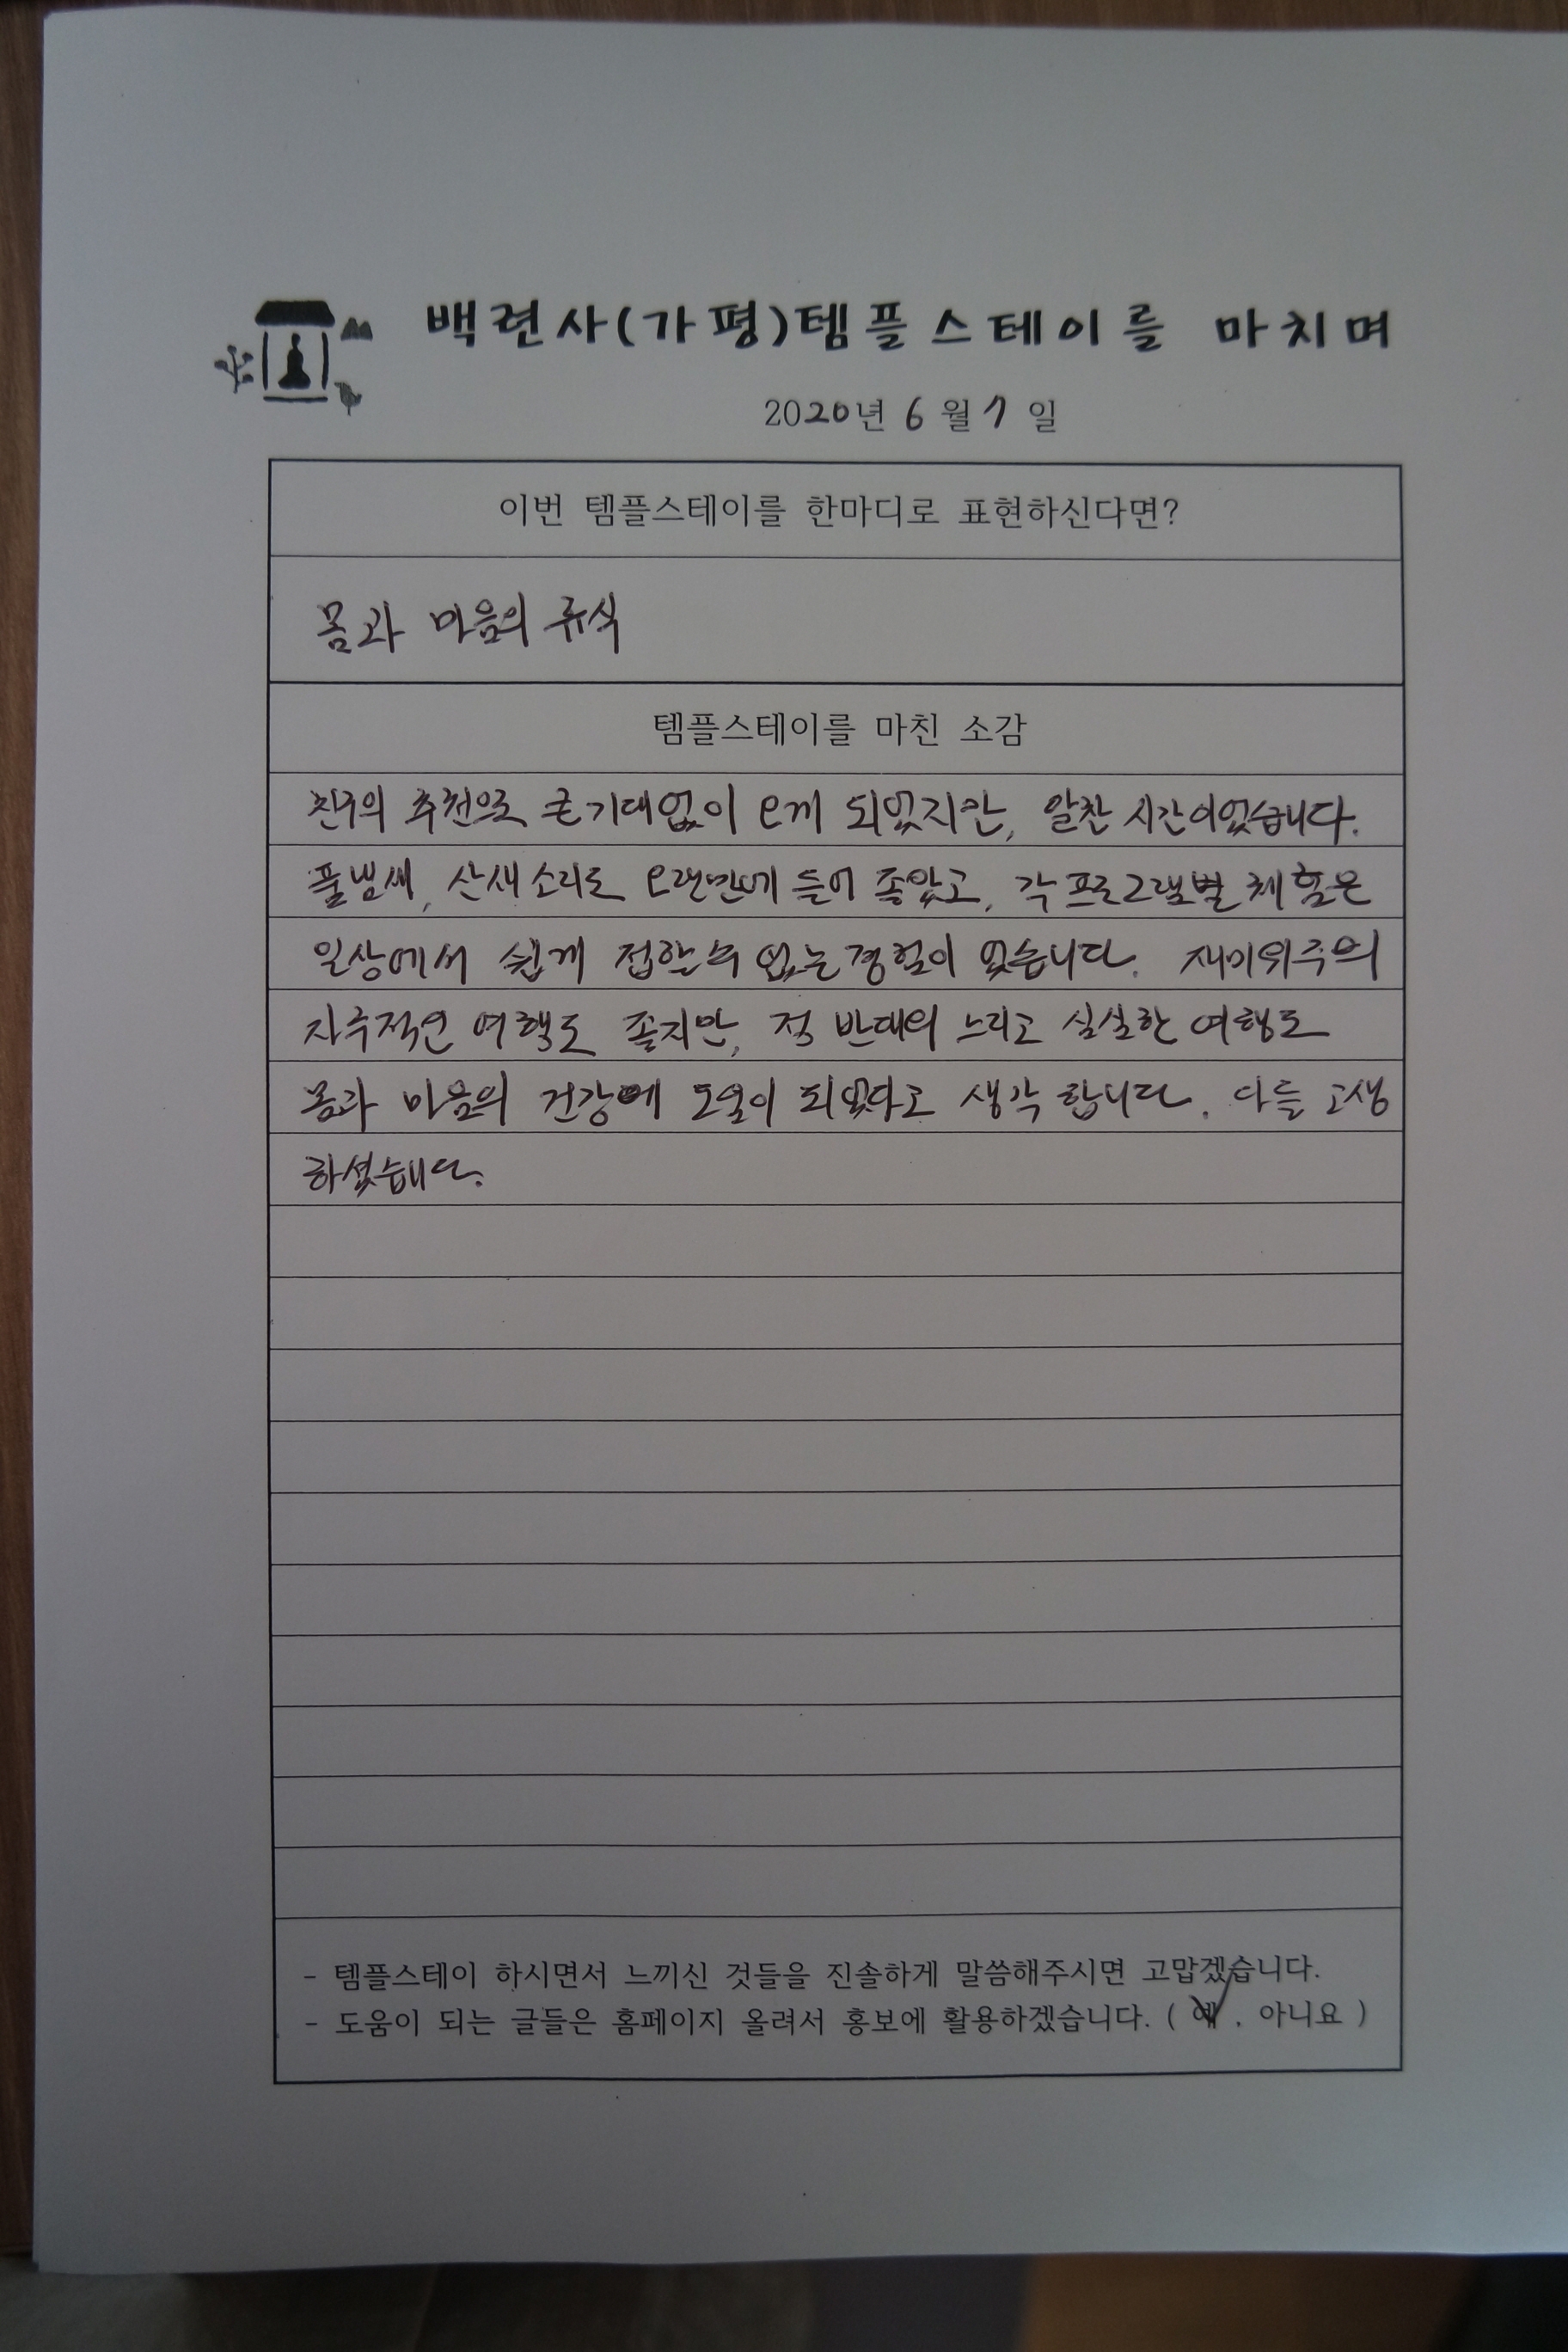 백련사(가평)템플스테이를 마치며
2020년 6월 7일
이번 템플스테이를 한마디로 표현하신다면?
몸과 마음의 휴식
템플스테이를 마친 소감
친구의 추천으로 큰기대없이 오게 되었지만, 알찬 시간이었습니다.
풀냄새, 산새소리도 오랜만에 들어 좋았고, 각 프로그램별 체험은
일상에서 쉽게 접할수 없는 경험이 었습니다. 재미위주의
자극적인 여행도 좋지만, 정 반대의 느리고 심심한 여행도
몸과 마음의 건강에 도움이 되었다고 생각 합니다. 다들 고생
하셨습니다.
- 템플스테이 하시면서 느끼신 것들을 진솔하게 말씀해주시면 고맙겠습니다.
- 도움이 되는 글들은 홈페이지 올려서 홍보에 활용하겠습니다. ( 예 . 아니요 )